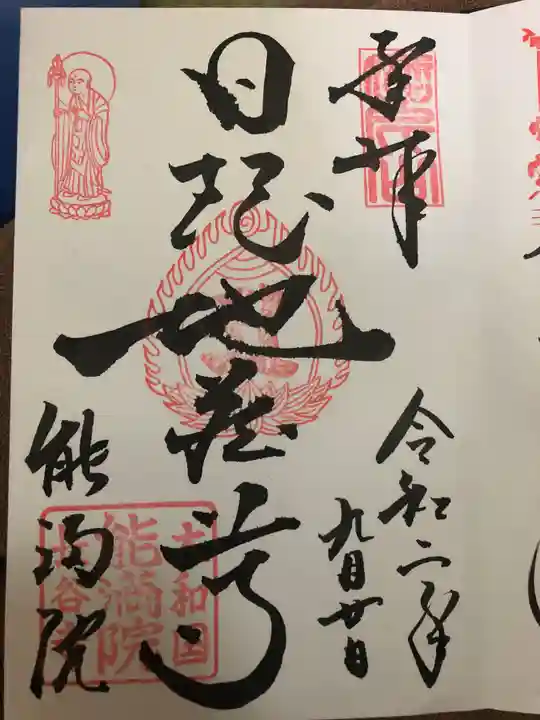 奉拝
令和二年
九月廿日
日玘地蔵尊
能満院
大和国
能満院
長谷寺